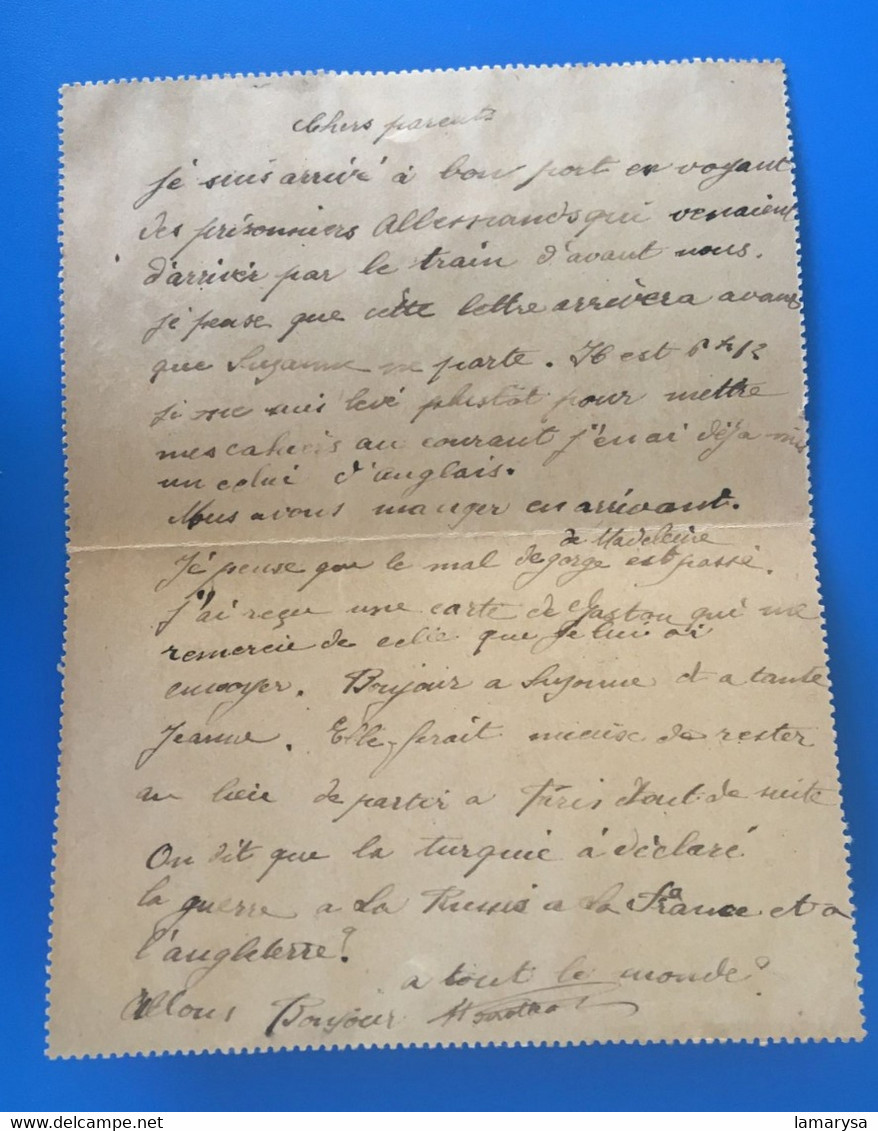 Chers parents
Je suis arrivé à bon port en voyant
des prisonniers Allemands qui venaient
d'arriver par le train d'avant nous.
Je pense que cette lettre arrivera avant
que Suzanne ne parte. Il est 6h 1/2
je me suis levé plustôt pour mettre
mes cahiers au courant j'en ai déjà mis
un celui d'anglais.
Nous avons manger en arrivant.
de Madeleine
Je pense que le mal de gorge est passé.
J'ai reçu une carte de Gaston qui me
remercie de celle que je lui ai
envoyer. Bonjour a Suzanne et a tante
Jeanne. Elle ferait mieux de rester
au lieu de partir a Paris tout de suite
On dit que la turquie à déclaré
la guerre a la Russie a la France et a
l'angleterre?
a tout le monde
Allons Bonjour
lamarysa